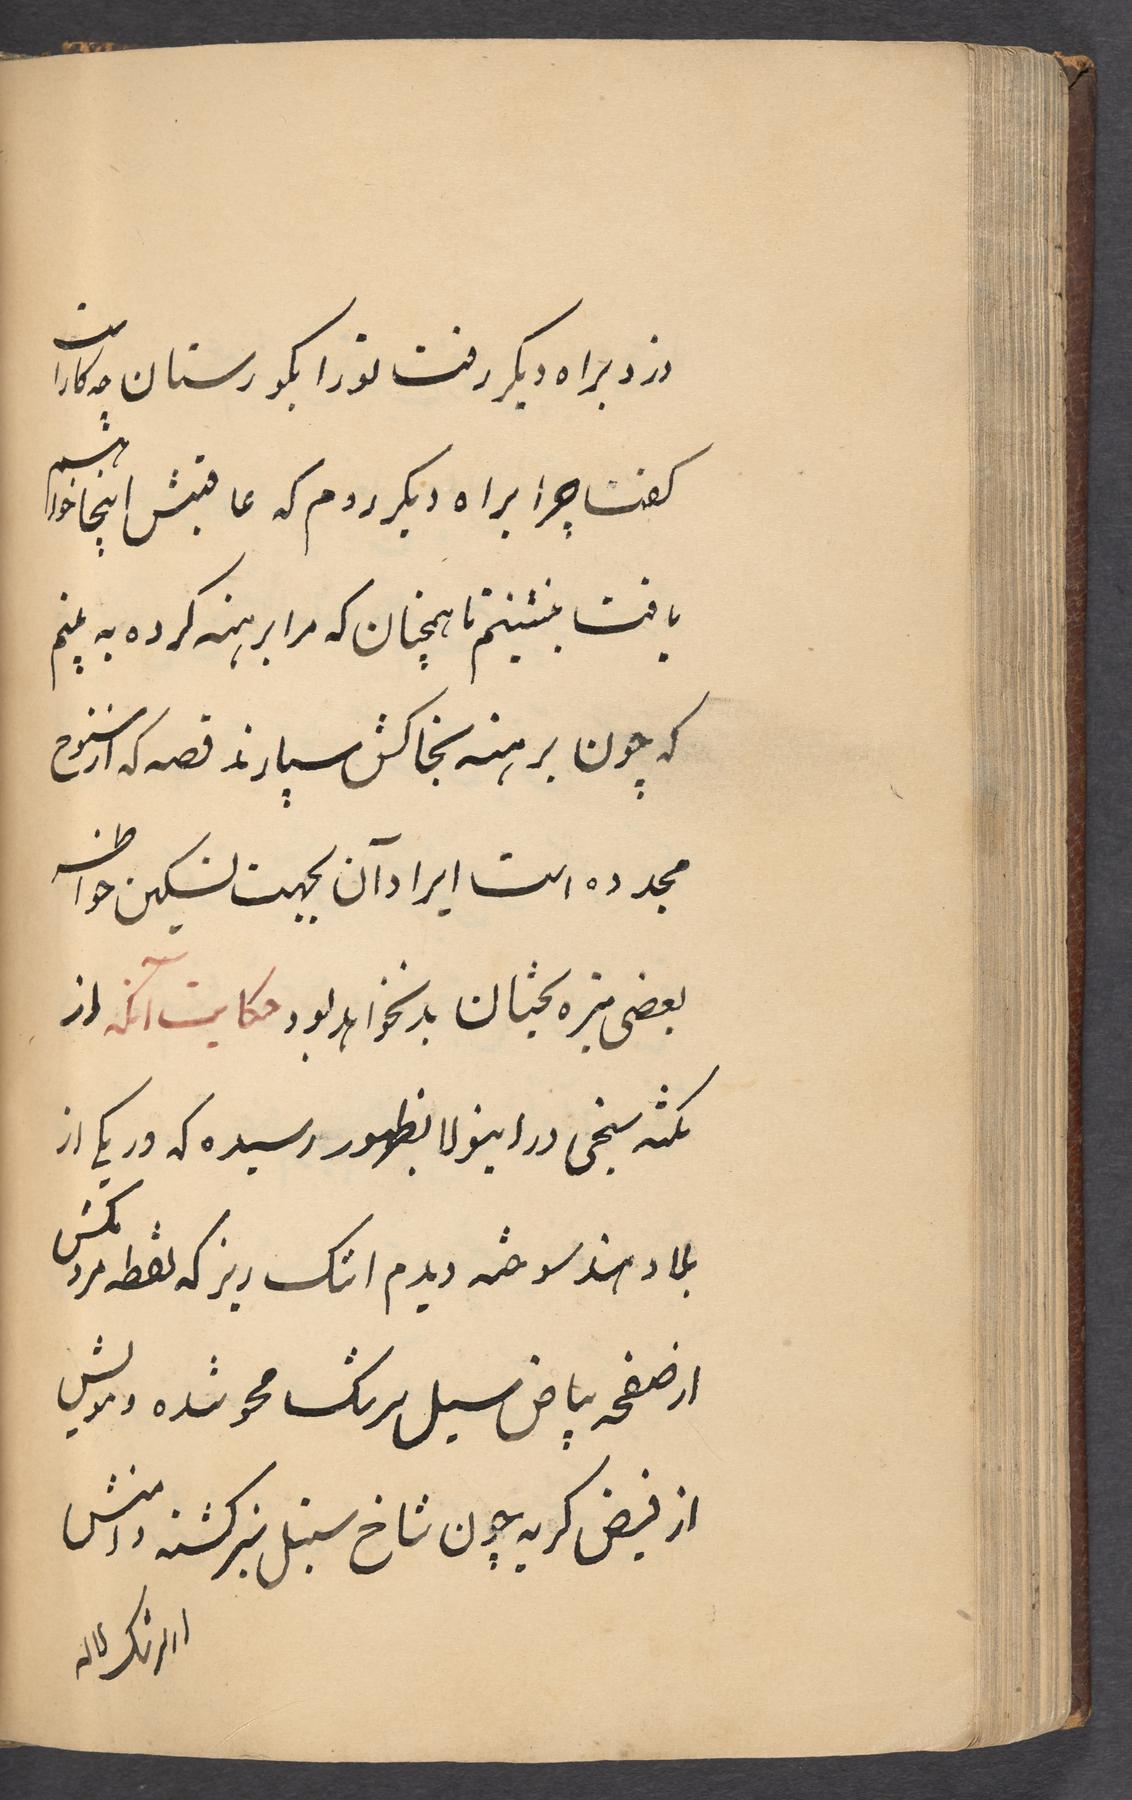 دزد براه دیکر رفت تو را بکورستان چه کار است
کفت چرا براه دیکر روم که عاقبتش اینجا خواهم
یافت بنشینم تا همچنان که مرا برهنه کرده به بینم
که چون برهنه بخاکش سپارند قصه که از سنوح
مجدده است ایراد آن بجهت تسکین خواطر
بعضی تیزه بختان بد نخواهد بود حکایت آنکه از
نکته سنجی در اینولا بظهور رسیده که در یکی از
بلاد هند سوخته دیدم اشک ریز که نقطه مردمکش
از صفحه بیاض سیل سرشک محو شده و مویش
از فیض کریه چون شاخ سنبل سبز کشته دامنش
از اشک لاله